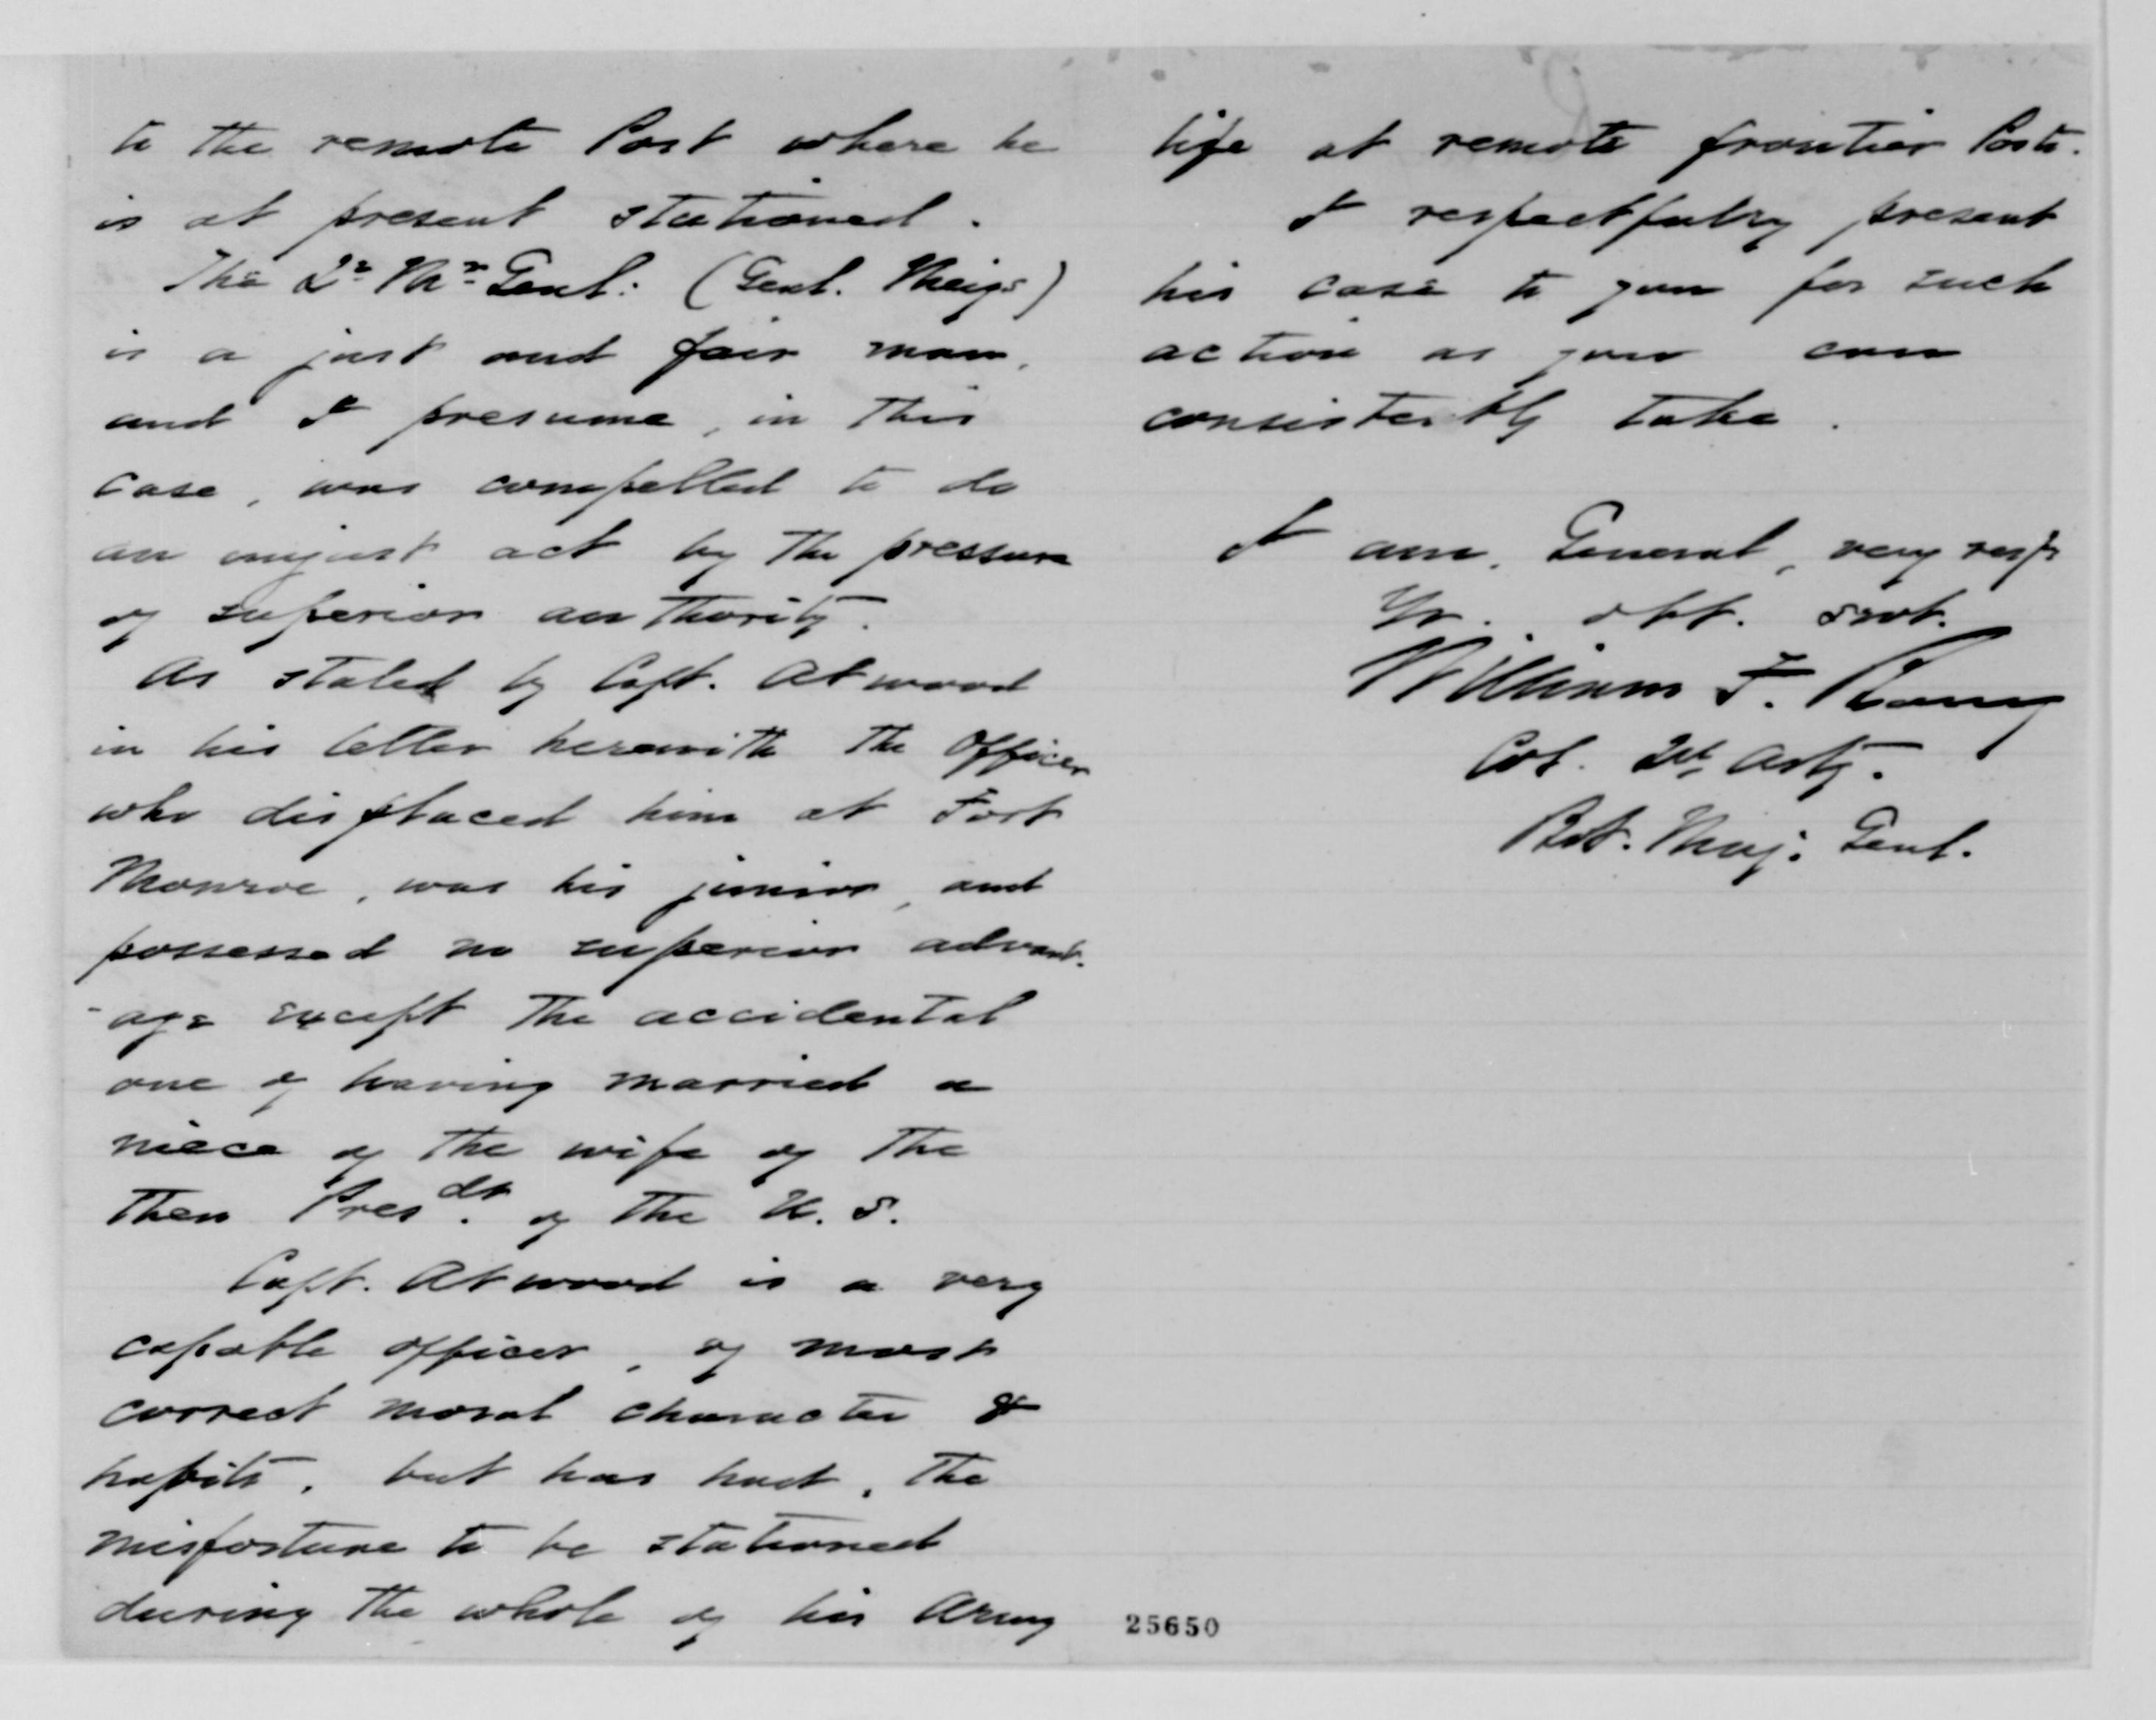 to the remote Post where he
is at present stationed.
The Qr. Mr. Genl: (Genl. Meigs)
is a just and fair man,
and I presume, in this
case, was compelled to do
an unjust act by the pressure
of superior authority.
As stated by Capt. Atwood
in his letter herewith the Officer
who displaced him at Fort
Monroe, was his junior, and
possessed no superior advant-
-age except the accidental
one of having married a
niece of the wife of the
then Presdt. of the U. S.
Capt. Atwood is a very
capable officer, of most
correct moral character &
habits, but has had, the
misfortune to be stationed
during the whole of his Army
life at remote frontier Posts.
I respectfully present
his case to you for such
action as you can
consistently take.
I am, General, very respy
Yr. obt. Svt.
William F. Barry
Col. 2d. Arty.
Bvt. Maj. Genl.
25650